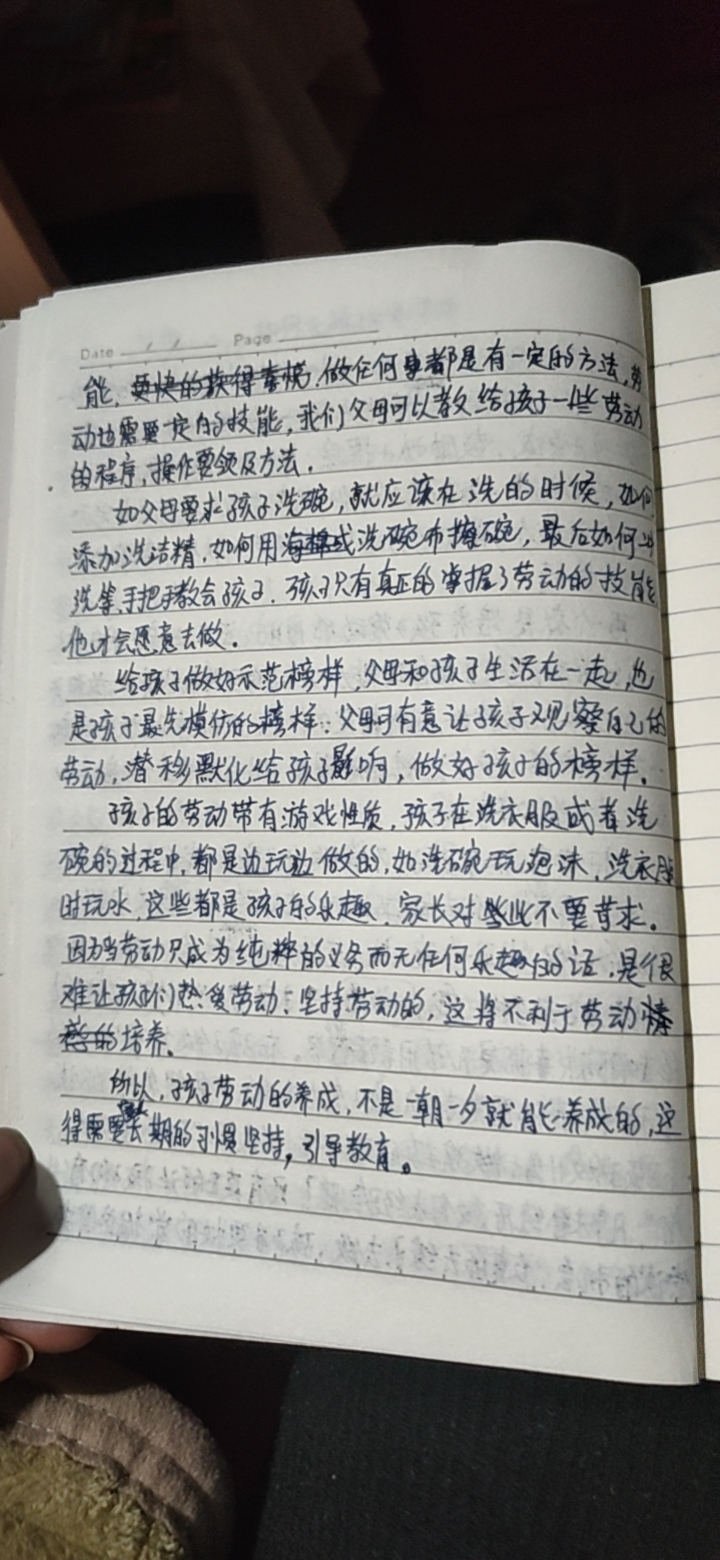 Date / / Page
能,更快的获得幸福,做任何事都是有一定的方法,劳
动也需要一定的技能,我们父母可以教给孩子一些劳动
的程序,操作要领及方法.
如父母要求孩子洗碗,就应该在洗的时候,如何
添加洗洁精,如何用海棉或洗碗布擦碗,最后如何
洗等,手把手教会孩子.孩子只有真正的掌握了劳动的技能
他才会愿意去做.
给孩子做好示范榜样,父母和孩子生活在一起,也
是孩子最先模仿的榜样.父母可有意让孩子观察自己的
劳动,潜移默化给孩子影响,做好孩子的榜样.
孩子的劳动带有游戏性质.孩子在洗衣服或者洗
碗的过程中,都是边玩边做的,如洗碗玩泡沫,洗衣服
时玩水,这些都是孩子的乐趣.家长对些不要苛求.
因为当劳动只成为纯粹的义务而无任何乐趣的话,是很
难让孩子们热爱劳动.坚持劳动的,这将不利于劳动情
的培养.
所以,孩子劳动的养成,不是一朝一夕就能养成的,这
得需要长期的习惯坚持,引导教育。